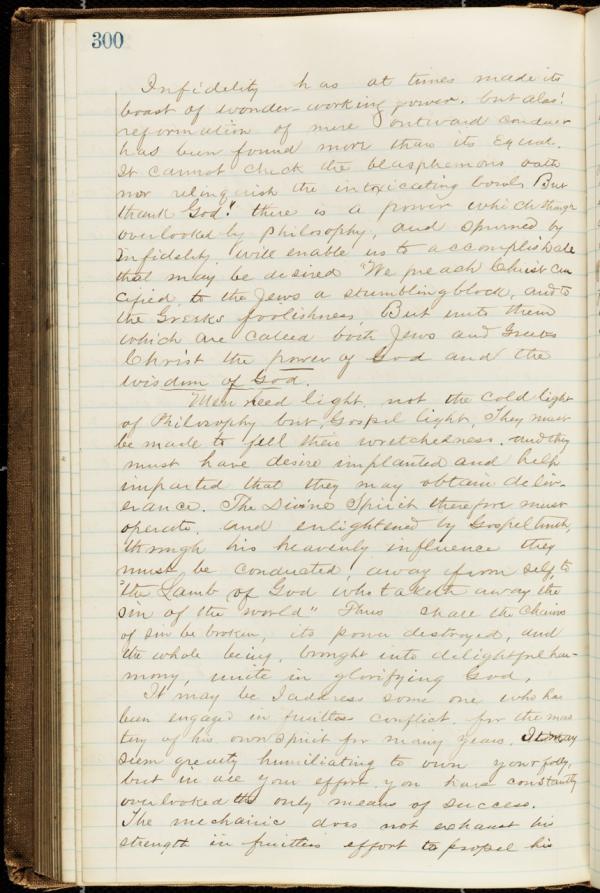 300
Infidelity has at times made its
boast of wonder-working power, but alas!
reformation of mere outward conduct
has been found more than its equal.
It cannot check the blasphemous oath
nor relinquish the intoxicating bowl. But
thank God! there is a power which though
overlooked by Philosophy, and spurned by
Infidelity will enable us to accomplish all
that may be desired "We preach Christ cru
cified, to the Jews a stumblingblock, and to
the Greeks foolishness But unto them
which are called both Jews and Greeks
Christ the power of God and the
wisdom of God.
Men need light, not the cold light
of Philosophy but Gospel light, They must
be made to fell their wretchedness. and they
must have desire implanted and help
imparted that they may obtain deliv-
erance. The Divine Spirit therefore must
operate, and enlightened by Gospel truth,
through his heavenly influence they
must be conducted, away from self, to
"the Lamb of God who taketh away the
sin of the world" Thus shall the chains
of sin be broken, its power destroyed, and
the whole being, brought into delightful har-
mony, unite in glorifying God,
It may be I address some one who has
been engaged in fruitless conflict for the mas
tery of his own spirit for many years. It may
seem greatly humiliating to own your folly,
but in all your effort you have constantly
overlooked the only means of success.
The mechanic does not exhaust his
strength in fruitless effort to propel his